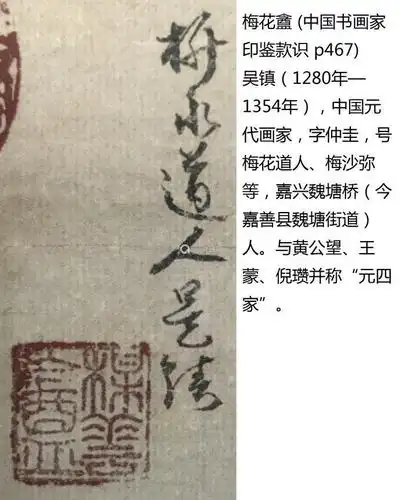 梅花盦 (中国书画家
印鉴款识 p467)
吴镇（1280年—
1354年），中国元
代画家，字仲圭，号
梅花道人、梅沙弥
等，嘉兴魏塘桥（今
嘉善县魏塘街道）
人。与黄公望、王
蒙、倪瓒并称“元四
家”。
道人